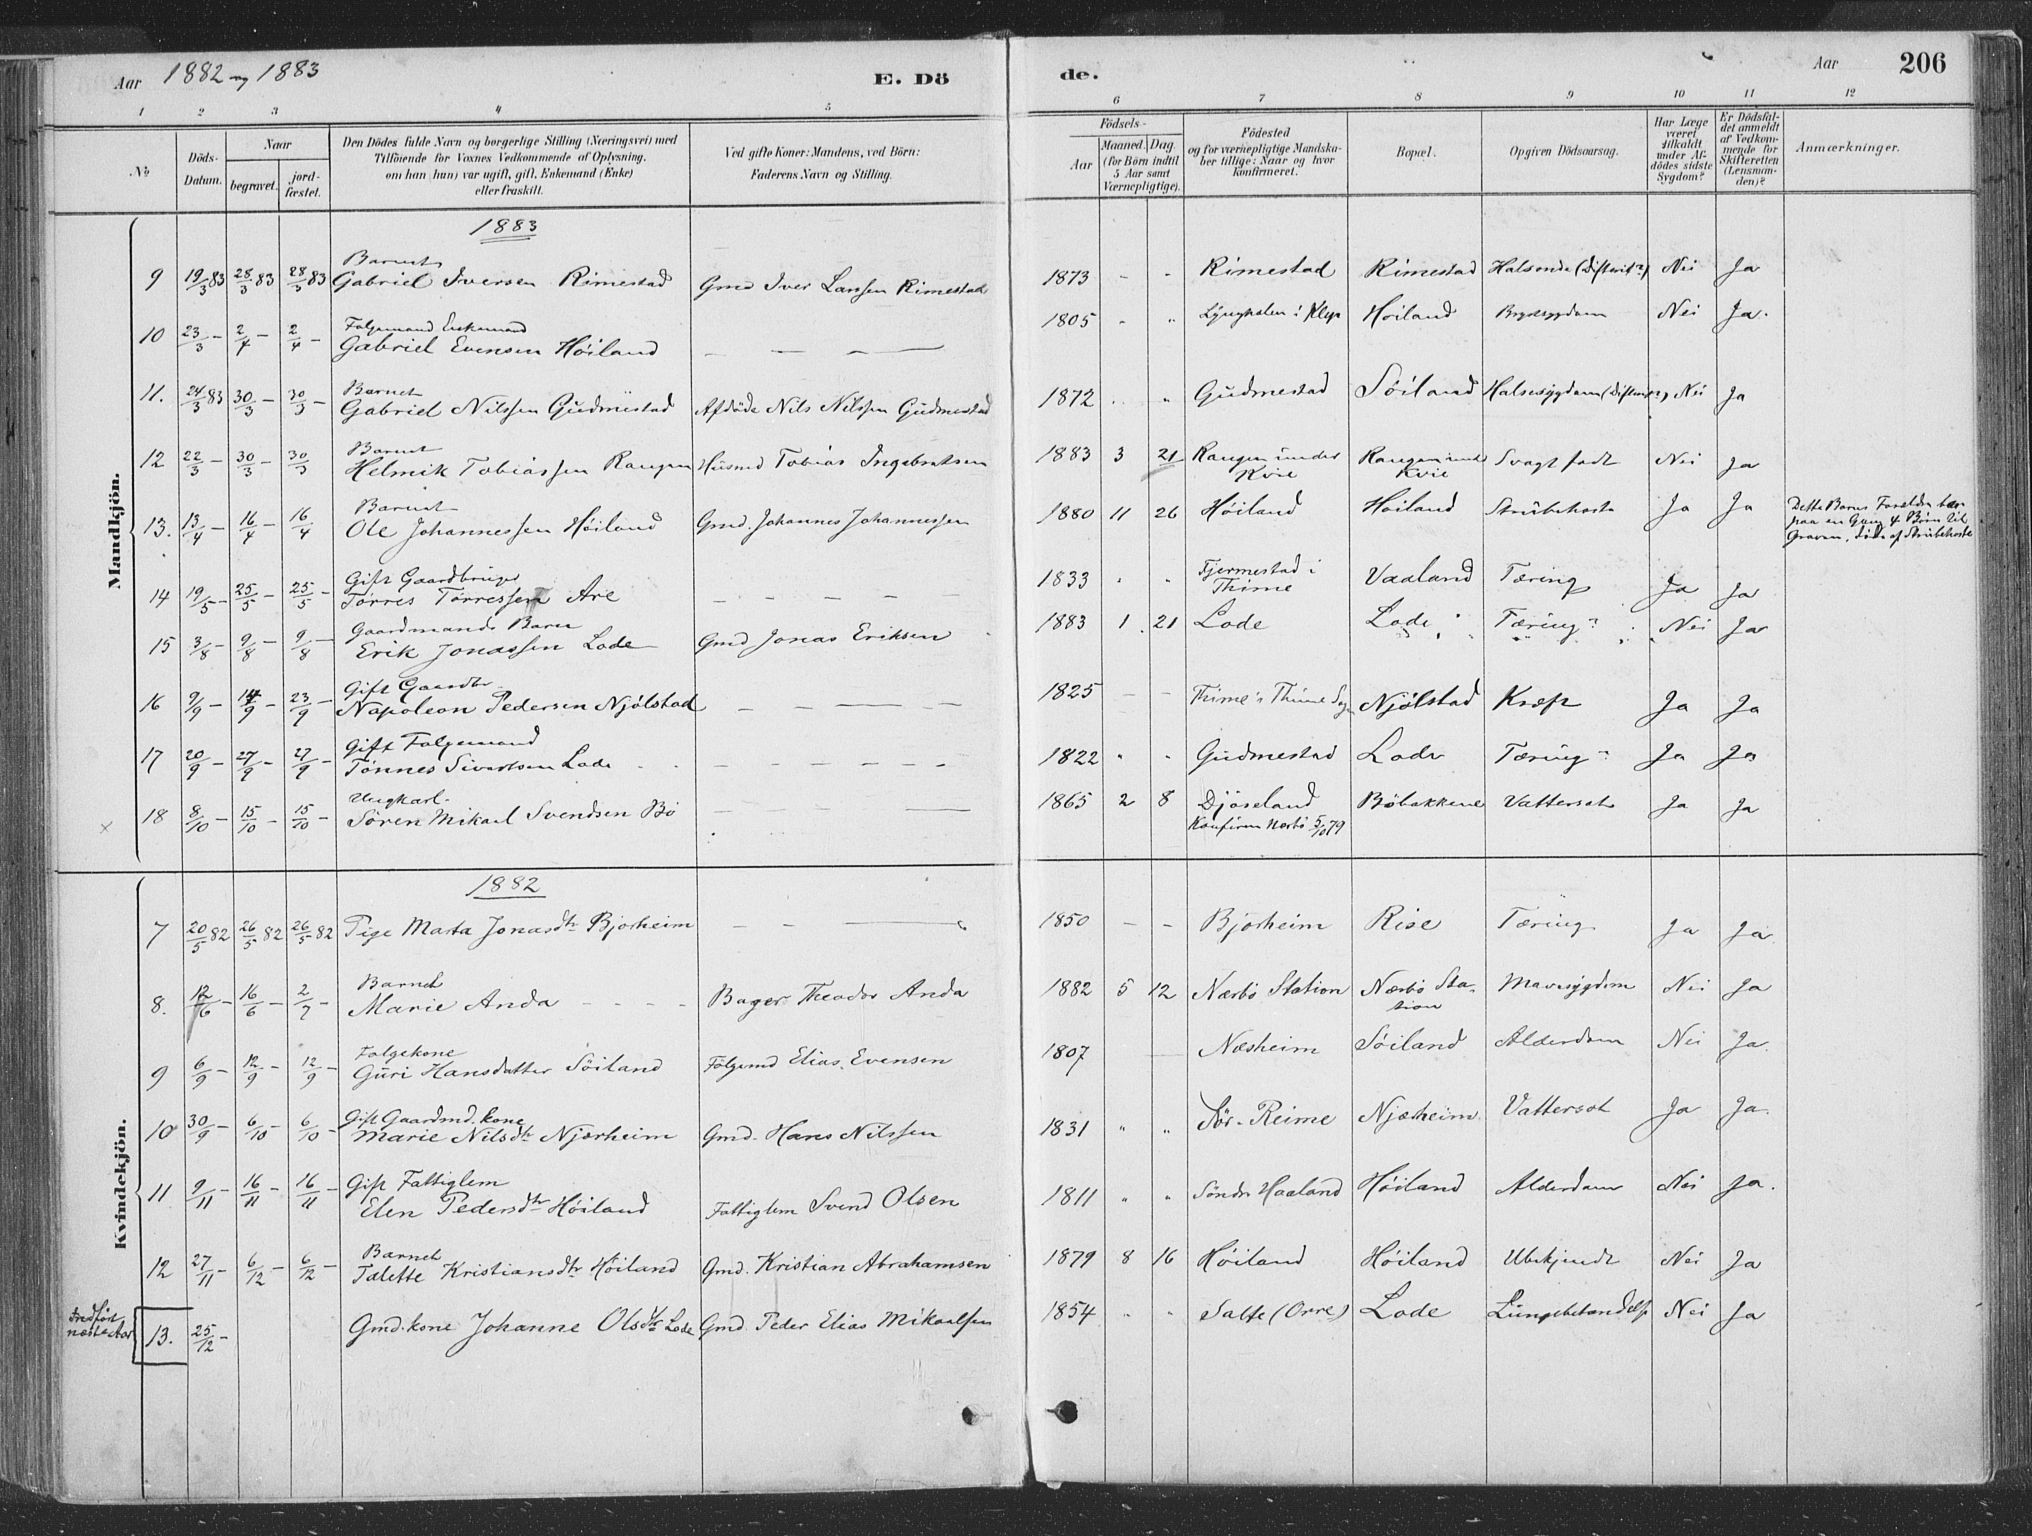 Aar 1882 og 1883 E. Dö
de. Aar 206
1 2 3 4 5 6 7 8 9 10 11 12
No
Döds-Datum.
Naar
begravet.
jord-fæstet.
Den Dödes fulde Navn og borgerlige Stilling (Næringsvei) med
Tilföiende for Voxnes Vedkommende af Oplysning,
om han (hun) var ugift, gift, Enkemand (Enke)
eller fraskilt.
Ved gifte Koner: Mandens, ved Börn:
Faderens Navn og Stilling.
Födsels-
Aar
Maaned. Dag.
(for Börn indtil
5 Aar samt
Værnepligtige).
Födested
og for værnepligtige Mandska-
ber tillige: Naar og hvor
konfirmeret.
Bopæl.
Opgiven Dödsaarsag.
Har Læge
været
tilkaldt
under Af-
dödes sidste
Sygdom?
Er Dödsfal-
det anmeldt
af Vedkom-
mende for
Skifteretten
(Lensman-
den)?
Anmærkninger.
Mandkjön.
1883
9 19/3 83 28/3 83 28/3 83 Barnet
Gabriel Iversen Rimestad Gmd Iver Larsen Rimestad 1873 - - Rimestad Rimestad Halsonde (Difterit?) Nei Ja
10 23/3 - 2/4 - 2/4 - Folgemand Enkemand
Gabriel Evensen Höiland - - - 1805 " " i Klep Höiland Brystsygdom Nei Ja.
11. 24/3 83 30/3 - 30/3 - Barnet
Gabriel Nilssen Gudmestad Afdöde Nils Nilssen Gudmestad 1872 " " Gudmestad Söiland Halsesygdom (Difterit?) Nei Ja
12 22/3 - 30/3 - 30/3 Barnet
Helmik Tobiassen Rangen Husmd Tobias Ingebretsen 1883 3 21 Rangen under Kvie Rangen und Kvie Svagt födt Nei Ja
13. 13/4 - 16/4 - 16/4 Barnet
Ole Johannessen Höiland Gmd. Johannes Johannessen 1880 11 26 Höiland Höiland Strubehoste Ja Ja Dette Barns Forældre bar
paa en Gang 4 Börn til
Graven, döde af Strubehoste
14 19/5 - 25/5 - 25/5 - Gift Gaardbruger
Torres Torressen Are - - - - 1833 " " Fjermestad i Thime Vaaland Tæring Ja Ja
15 3/8 - 9/8 - 9/8 - Gaardmands Barn
Erik Jonassen Lode Gmd Jonas Eriksen 1883 1 21 Lode Lode Tæring? Nei Ja
16 9/9 - 14/9 - 23/9 - Gift Gaardbr.
Napoleon Pedersen Njölstad - - - - 1825 - - Thime i Thime Sogn Njölstad Kræft Ja Ja
17 20/9 - 27/9 - 27/9 - Gift Folgemand
Tönnes Sivertsen Lode - - - - - - 1822 " " Gudmestad Lode Tæring? Ja Ja
x 18 8/10 - 15/10 - 15/10 - Ungkarl.
Sören Mikael Svendsen Bö - - - 1865 2 8 Djöseland
Konfirm Nærbö 5/10 79 Böbakkene Vattersot Ja Ja
Kvindekjön.
1882
7 20/5 82 26/5 82 26/5 82 Pige Marta Jonasdtr Bjorheim - - - 1850 - - Bjorheim Rise Tæring Ja Ja
8. 12/6 - 16/6 - 2/7 - Barnet
Marie Anda - - - - Bager Theodor Anda 1882 5 12 Nærbö Station Nærbö Sta-
tion Mavesygdom Nei Ja
9 6/9 - 12/9 - 12/9 - Folgekone
Guri Hansdatter Söiland Folgemd Elias Evensen 1807 Næsheim Söiland Alderdom Nei Ja.
10 30/9 - 6/10 - 6/10 - Gift Gaardmd. kone
Marie Nilsdtr Njærheim Gmd. Hans Nilssen 1831 " " Sör-Reime Njærheim Vattersot Ja Ja.
11 9/11 - 16/11 - 16/11 - Gift Fattiglem
Elen Pedersdtr Höiland Fattiglem Svend Olsen 1811 " " Söndr Haaland Höiland Alderdom Nei Ja.
12 27/11 - 6/12 - 6/12 - Barnet
Talette Kristiansdtr Höiland Gmd. Kristian Abrahamsen 1879 8 16 Höiland Höiland Ubekjendt Nei Ja
Indfört
næste Aar 13. 25/12 - Gmd. kone Johanne Olsdtr Lode Gmd. Peder Elias Mikaelsen 1854 " " Salte (Orre) Lode Lungebetændelse Nei Ja